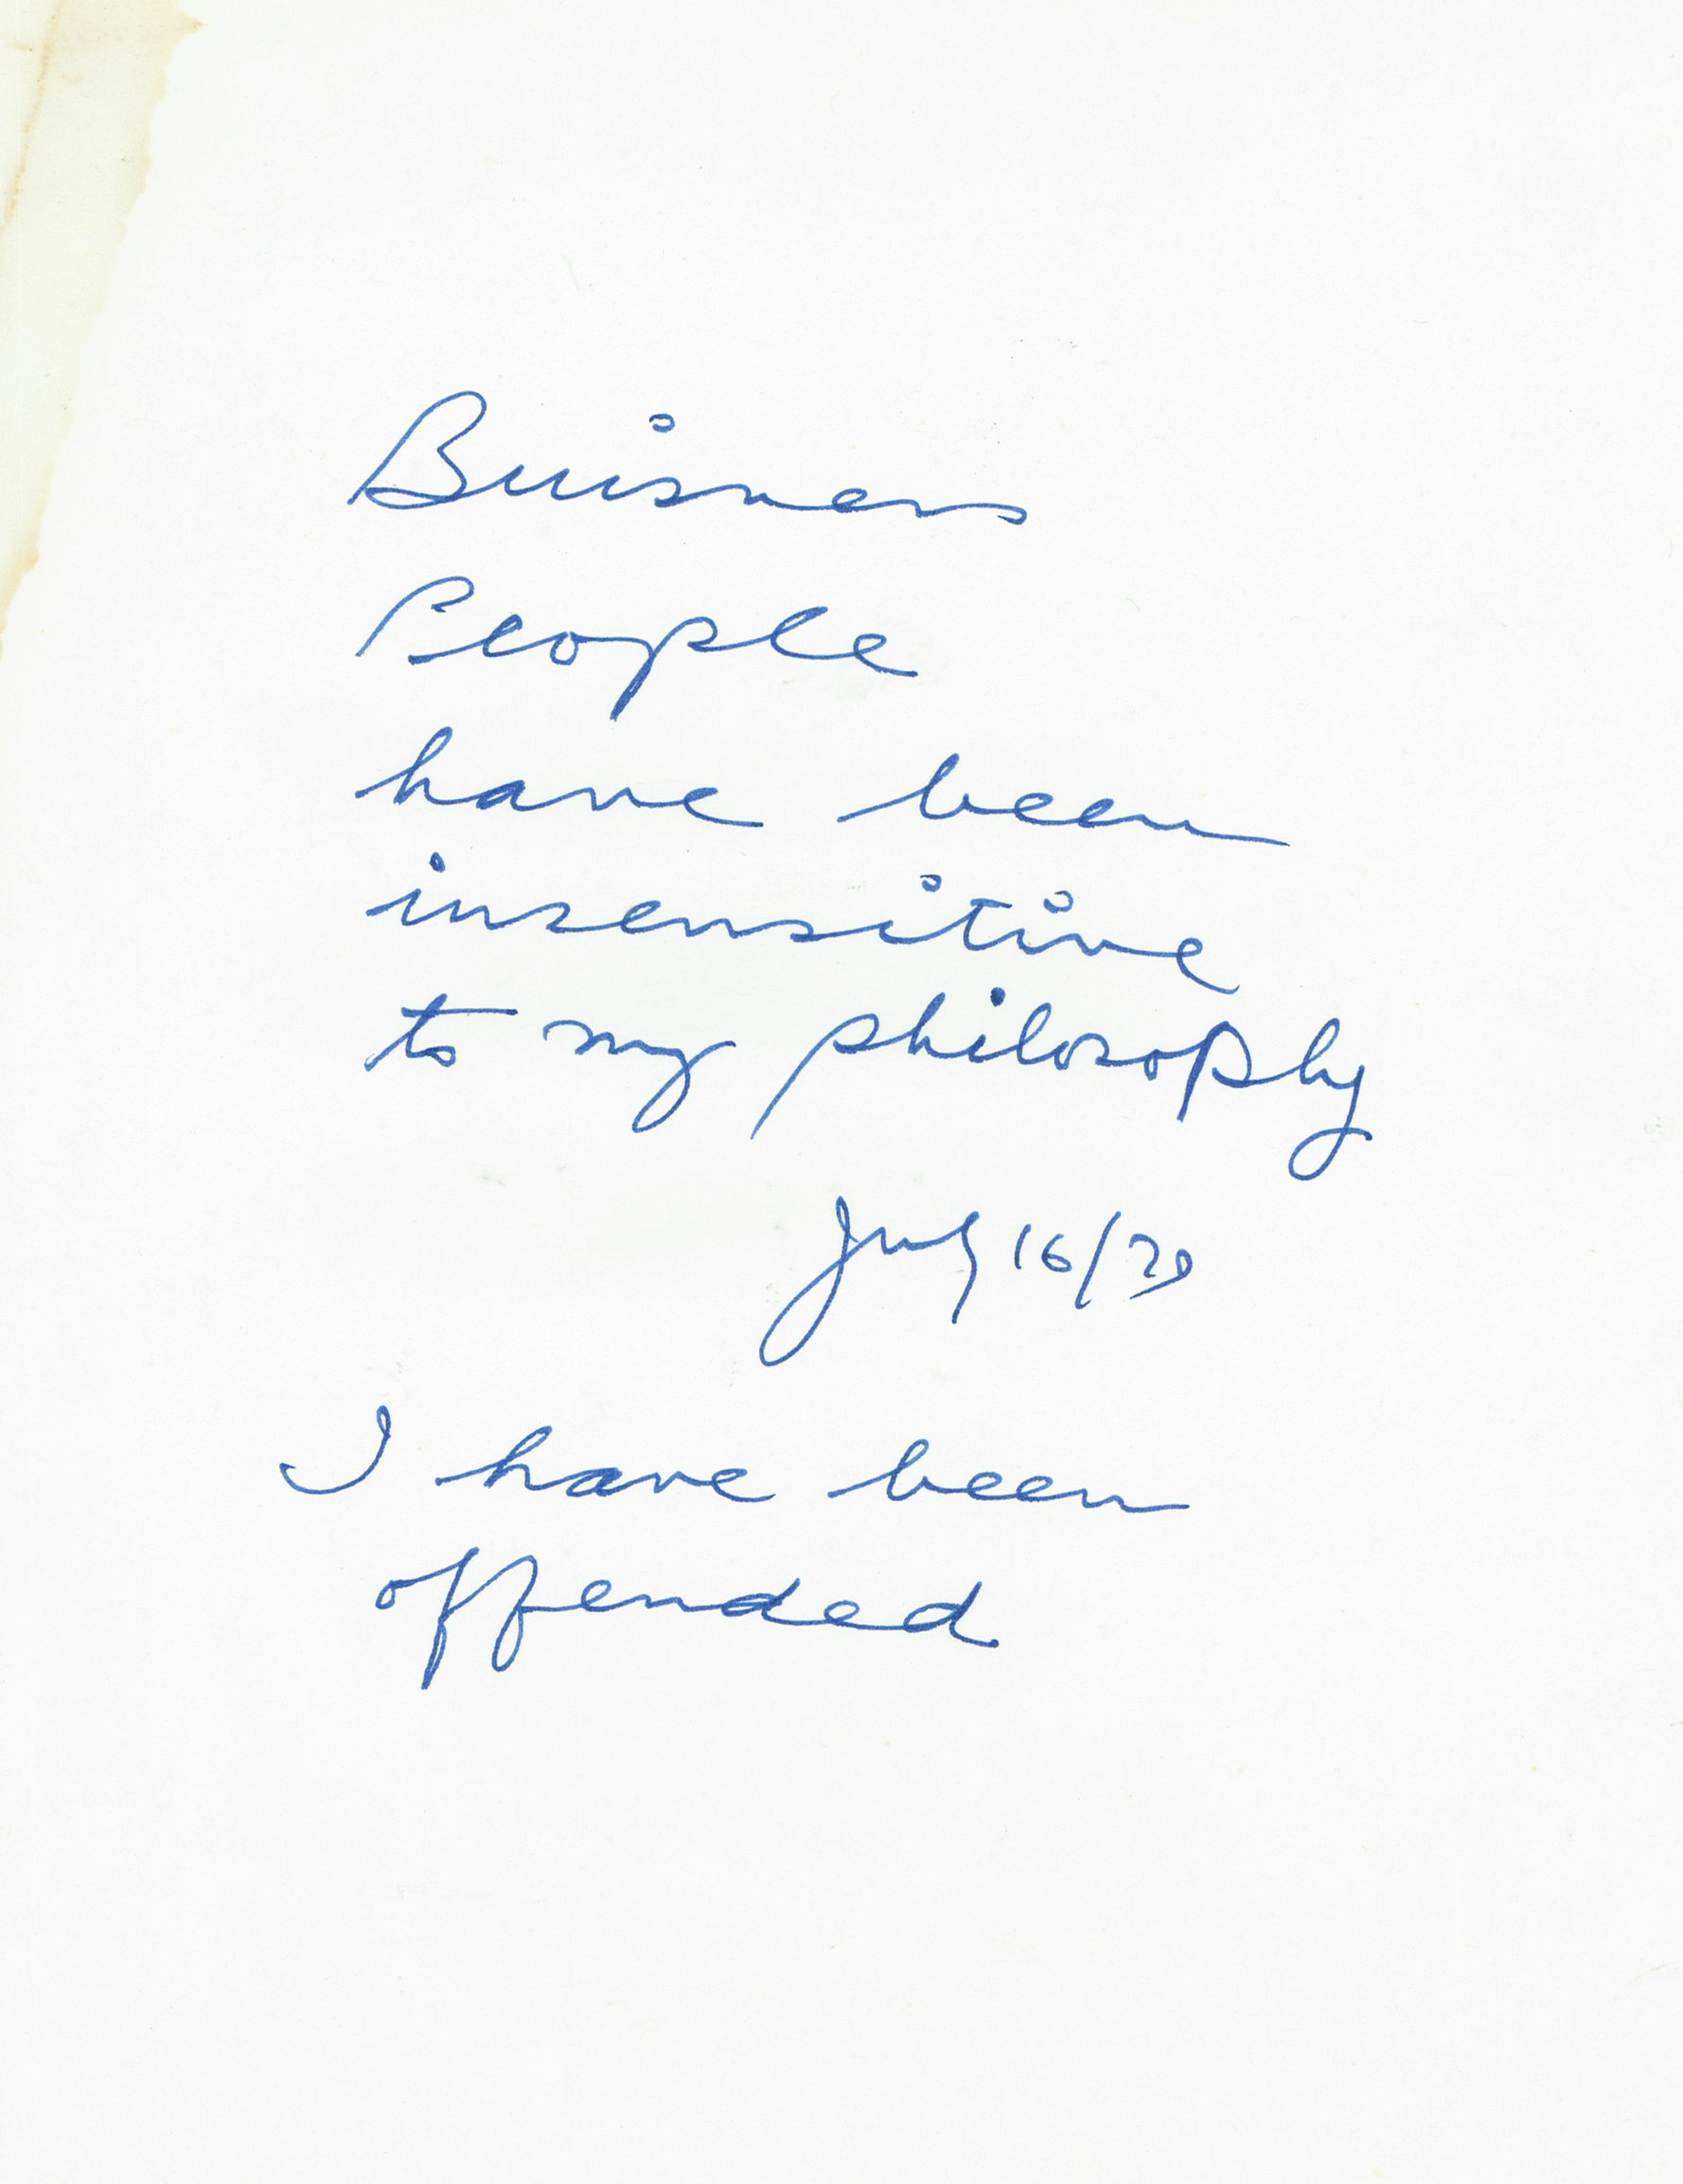 Buisness
People
have been
insensitive
to my philosophy
July 16/79
I have been
offended